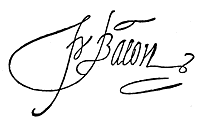 Fr Bacon